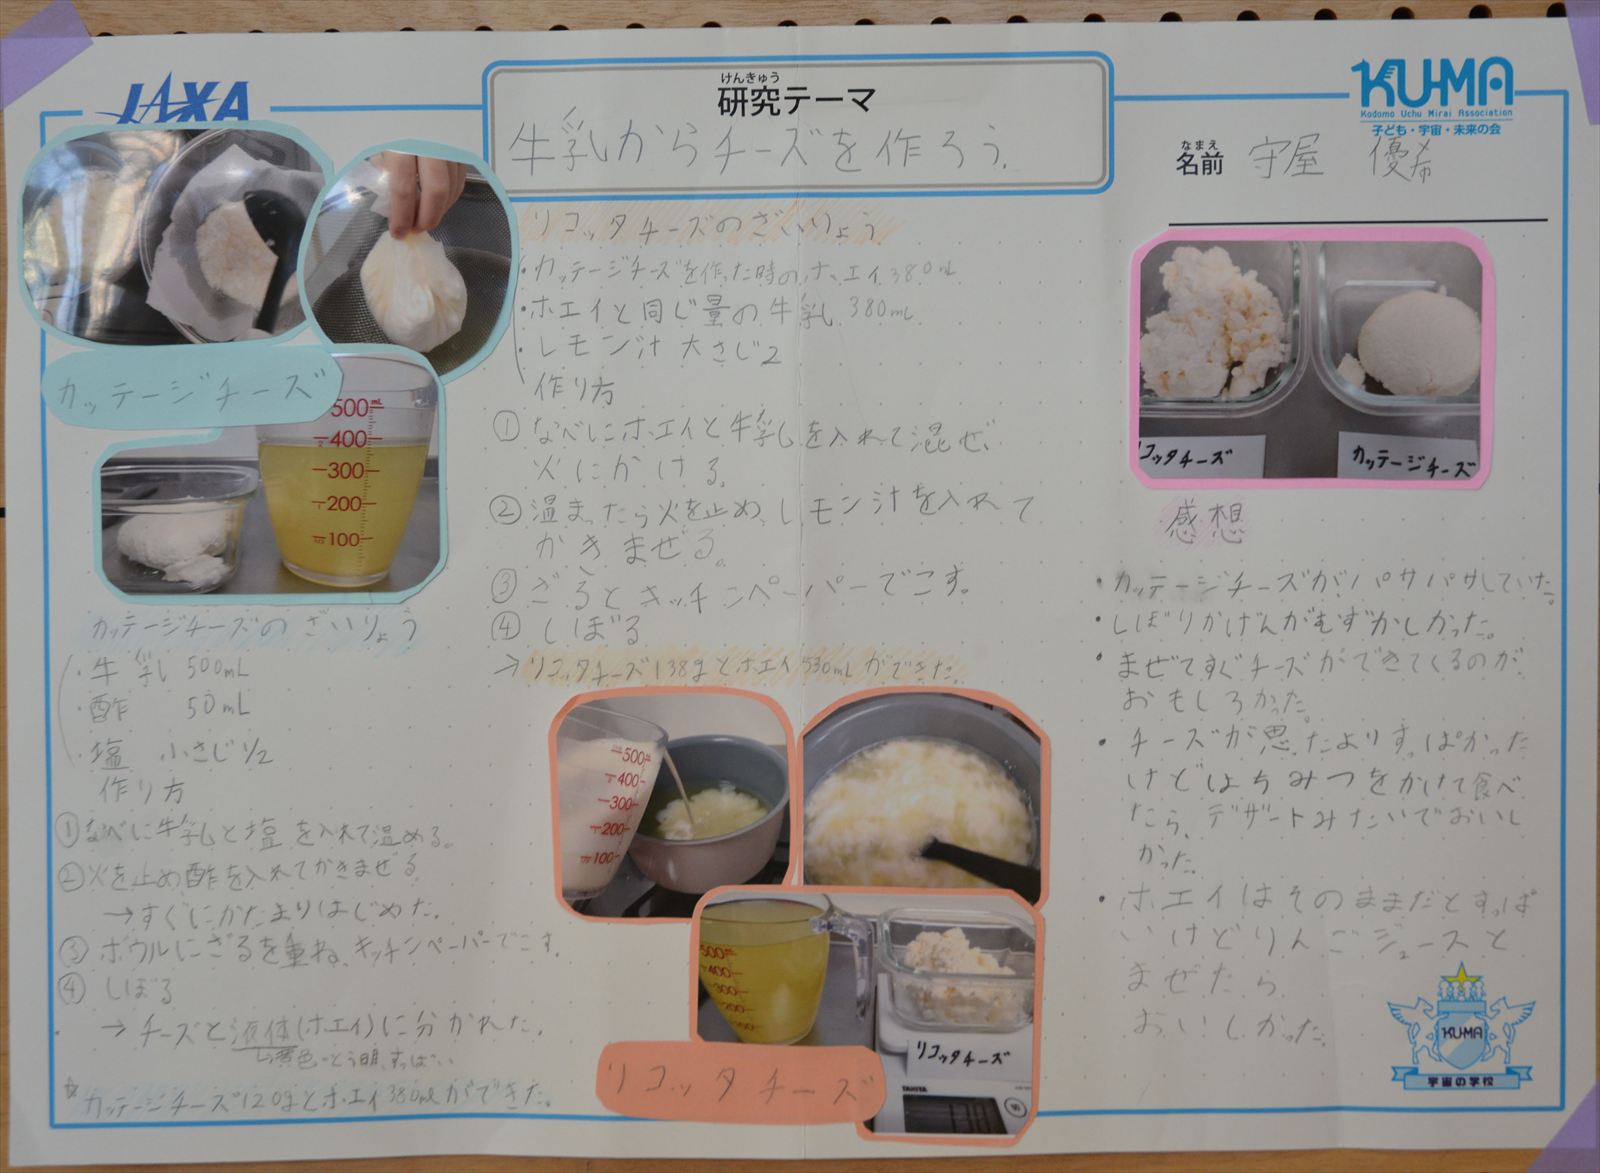 JAXA
けんきゅう
研究テーマ
牛乳からチーズを作ろう。
KU-MA
Kodomo Uchu Mirai Association
子ども・宇宙・未来の会
なまえ
名前 守屋 優希
カッテージチーズ
500mL
400
300
200
100
カッテージチーズのざいりょう
・牛乳 500mL
・酢 50mL
・塩 小さじ1/2
作り方
①なべに牛乳と塩を入れて温める。
②火を止め酢を入れてかきまぜる
→すぐにかたまりはじめた。
③ボウルにざるを重ね、キッチンペーパーでこす。
④しぼる
→チーズと液体(ホエイ)に分かれた。
↳黄色、とう明、すっぱい
☆カッテージチーズ120gとホエイ380mLができた。
リコッタチーズのざいりょう
・カッテージチーズを作った時のホエイ380mL
・ホエイと同じ量の牛乳 380mL
・レモン汁 大さじ2
作り方
①なべにホエイと牛乳を入れて混ぜ、
火にかける。
②温まったら火を止め、レモン汁を入れて
かきまぜる。
③ざるとキッチンペーパーでこす。
④しぼる
→リコッタチーズ138gとホエイ530mLができた。
500
400
300
200
100
500
400
300
リコッタチーズ
TANITA
リコッタチーズ
リコッタチーズ
カッテージチーズ
感想
・カッテージチーズがパサパサしていた。
・しぼりかげんがむずかしかった。
・まぜてすぐチーズができてくるのが
おもしろかった。
・チーズが思ったよりすっぱかった
けどはちみつをかけて食べ
たら、デザートみたいでおいし
かった。
・ホエイはそのままだとすっぱ
いけどりんごジュースと
まぜたら
おいしかった。
KU-MA
宇宙の学校